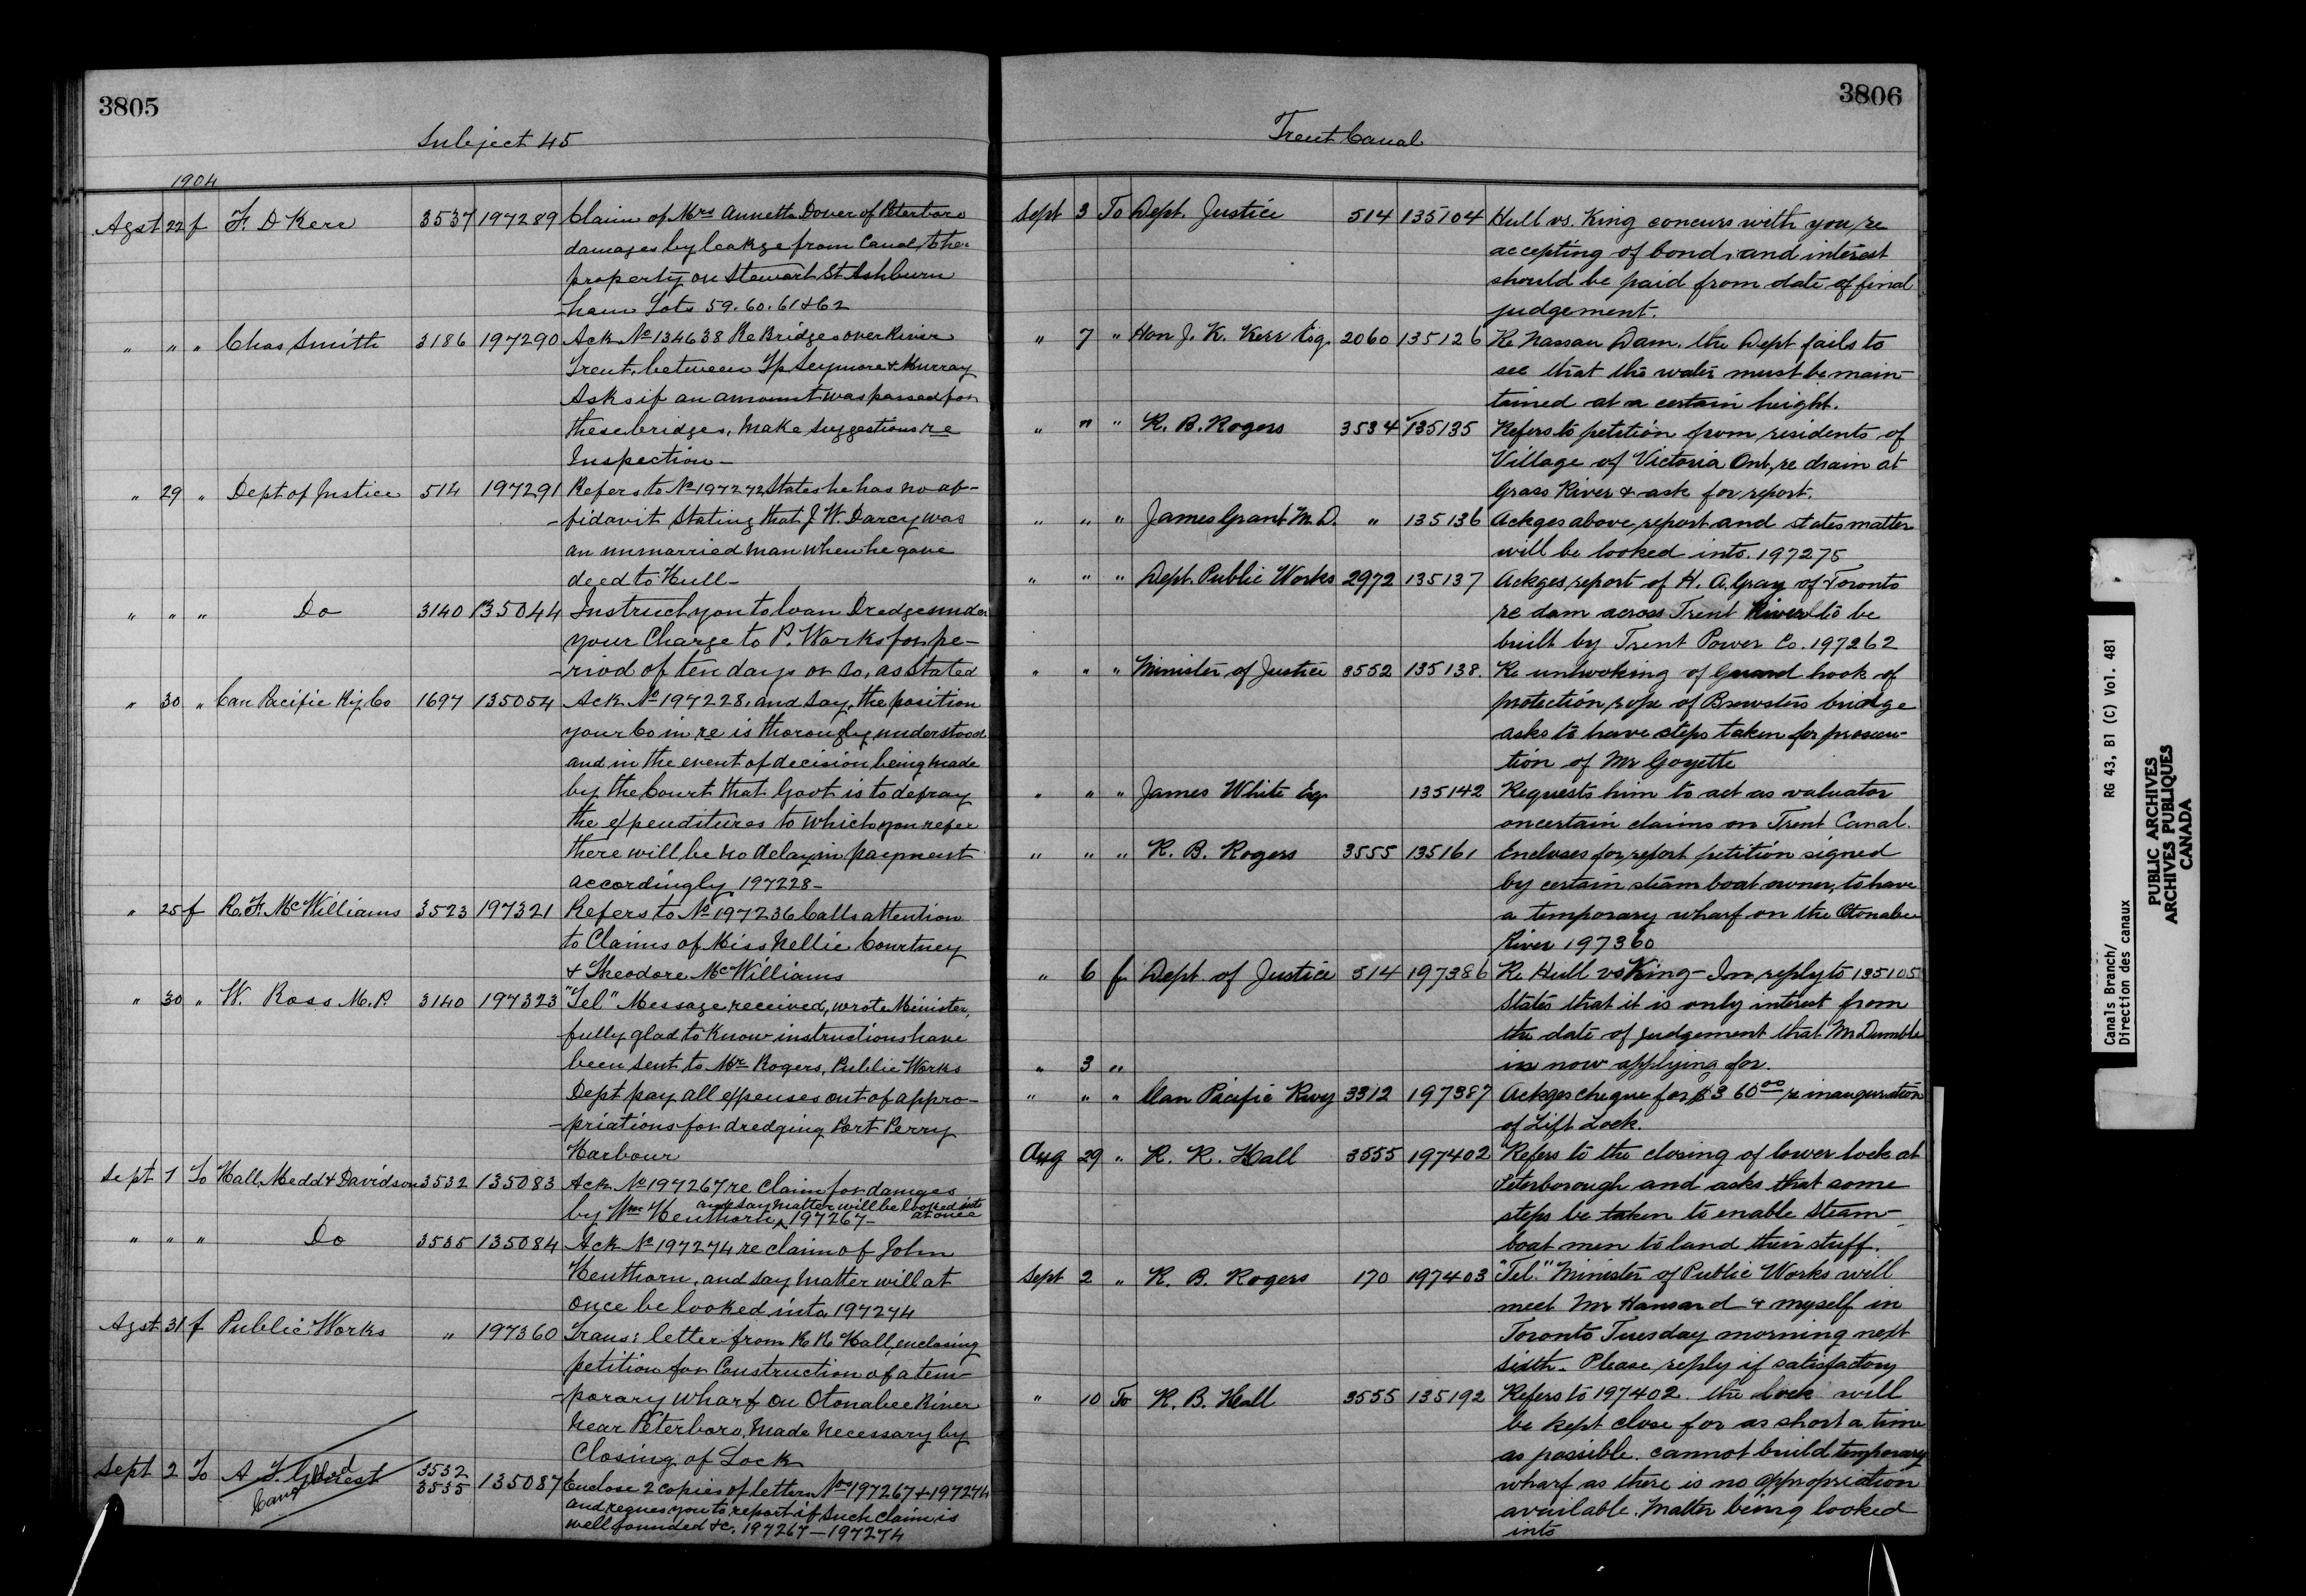 3805
Subject 45
1904
Agst 22 f F. D Kerr 3537 197289 Claim of Mrs Annetta Dover of Peterboro
damages by leakge from Canal to her
property on Stewart St. Ashburn
-ham Lots 59. 60. 61 & 62
" " " Chas Smith 3186 197290 Ack No 134638 Re Bridges over River
Trent, between Tp Seymore & Murray
Asks if an amount was passed for
these bridges, Make suggestions re
Inspection -
" 29 " Dept of Justice 514 197291 Refers to No 197272 States he has no af-
-fidavit stating that J W. Darcy was
an unmarried man when he gave
deed to Hull -
" " " Do 3140 135044 Instruct you to loan Dredge under
your Charge to P. Works for pe-
-riod of ten days or so, as stated
" 30 " Can Pacific Ry. Co 1697 135054 Ack No 197228, and say, the position
your Co in re is thorougly understood
and in the event of decision being made
by the Court that Govt is to defray
the expenditures to which you refer
there will be no delay in payment
accordingly 197228 -
" 25 f R. F. McWilliams 3523 197321 Refers to No 197236 Calls attention
to Claims of Miss Nellie Courtney
& Theodore McWilliams
" 30 " W. Ross M.P. 3140 197323 "Tel" Message received, wrote Minister,
fully glad to know instructions have
been sent to Mr Rogers, Public Works
Dept pay all expenses out of appro-
-priations for dredging Port Perry
Harbour
Sept 1 To Hall, Medd & Davidson 3532 135083 Ack No 197267 re Claim for damges
by Wm Henthorn, and say matter will be looked into at once 197267 -
" " " Do 3535 135084 Ack No 197274 re claim of John
Henthorn, and say matter will at
once be looked into 197274
Agst 31 f Public Works " 197360 Trans: letter from R R Hall, enclosing
petition for Construction of a tem-
-porary wharf on Otonabee River
near Peterboro, Made necessary by
Closing of Lock
Sept 2 To A. J. 3532
3535 135087 Enclose 2 copies of letters Nos 197267 & 197274
and reques you to report if such claim is
well founded &c. 197267 — 197274
3806
Trent Canal
Sept 3 To Dept. Justice 514 135104 Hull vs. King concurs with you re
accepting of bond, and interest
should be paid from date of final
judgement.
" 7 " Hon J. K. Kerr Esq. 2060 135126 Re Nassau Dam. the Dept fails to
see that the water must be main-
tained at a certain height.
" " " R. B. Rogers 3534 135135 Refers to petition from residents of
Village of Victoria Ont, re drain at
Grass River & ask for report.
" " " James Grant M.D. " 135136 Ackges above report and states matter
will be looked into. 197275
" " " Dept. Public Works 2972 135137 Ackges report of H. A. Gray of Toronto
re dam across Trent River to be
built by Trent Power Co. 197262
" " " Minister of Justice 3552 135138. Re unhooking of Guard hook of
protection rope of Brewsters bridge
asks to have steps taken for prosecu-
tion of Mr Goyette
" " " James White Esq 135142 Requests him to act as valuator
oncertain claims on Trent Canal.
" " " R. B. Rogers 3555 135161 Encloses for report petition signed
by certain steam boat owner, to have
a temporary wharf on the Otonabee
River 197360
" 6 f Dept of Justice 514 197386 Re Hull vs King - In reply to 135105
States that it is only interest from
the date of judgement that Mr Dumble
" 3 " is now applying for.
" " " Can Pacific Rwy 3312 197387 Ackges cheque for $360 00 re inauguration
of Lift Lock.
Aug 29 " R. R. Hall 3555 197402 Refers to the closing of lower lock at
Peterborough and asks that some
steps be taken to enable steam-
boat men to land their stuff.
Sept 2 " R. B. Rogers 170 197403 "Tel." Minister of Public Works will
meet Mr Hansard & myself in
Toronto Tuesday morning next
sixth. Please reply if satisfactory
" 10 To R. B. Hall 3555 135192 Refers to 197402. the lock will
be kept close for as short a time
as possible. cannot build temporary
wharf as there is no appropriation
available. Matter being looked
into
Canals Branch/
Direction des canaux
RG 43, B1 (C) Vol. 481
PUBLIC ARCHIVES
ARCHIVES PUBLIQUES
CANADA